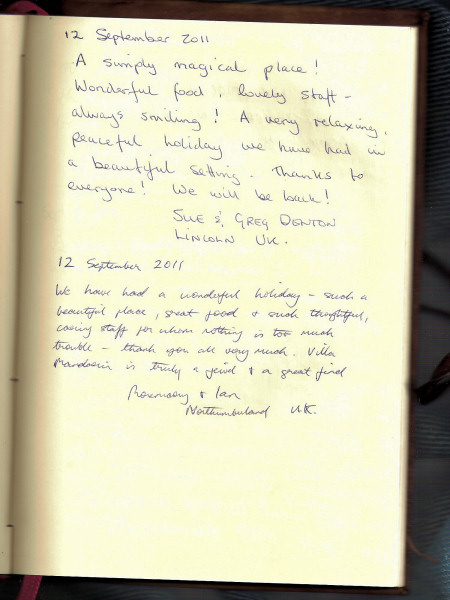 12 September 2011
A simply magical place!
Wonderful food, lovely staff -
always smiling! A very relaxing,
peaceful holiday we have had in
a beautiful setting. Thanks to
everyone! We will be back!
SUE & GREG DENTON
LINCOLN UK.
12 September 2011
We have had a wonderful holiday - such a
beautiful place, great food & such thoughtful,
caring staff for whom nothing is too much
trouble - thank you all very much. Villa
Mandarin is truly a jewel & a great find
Rosemary & Ian
Northumberland UK.